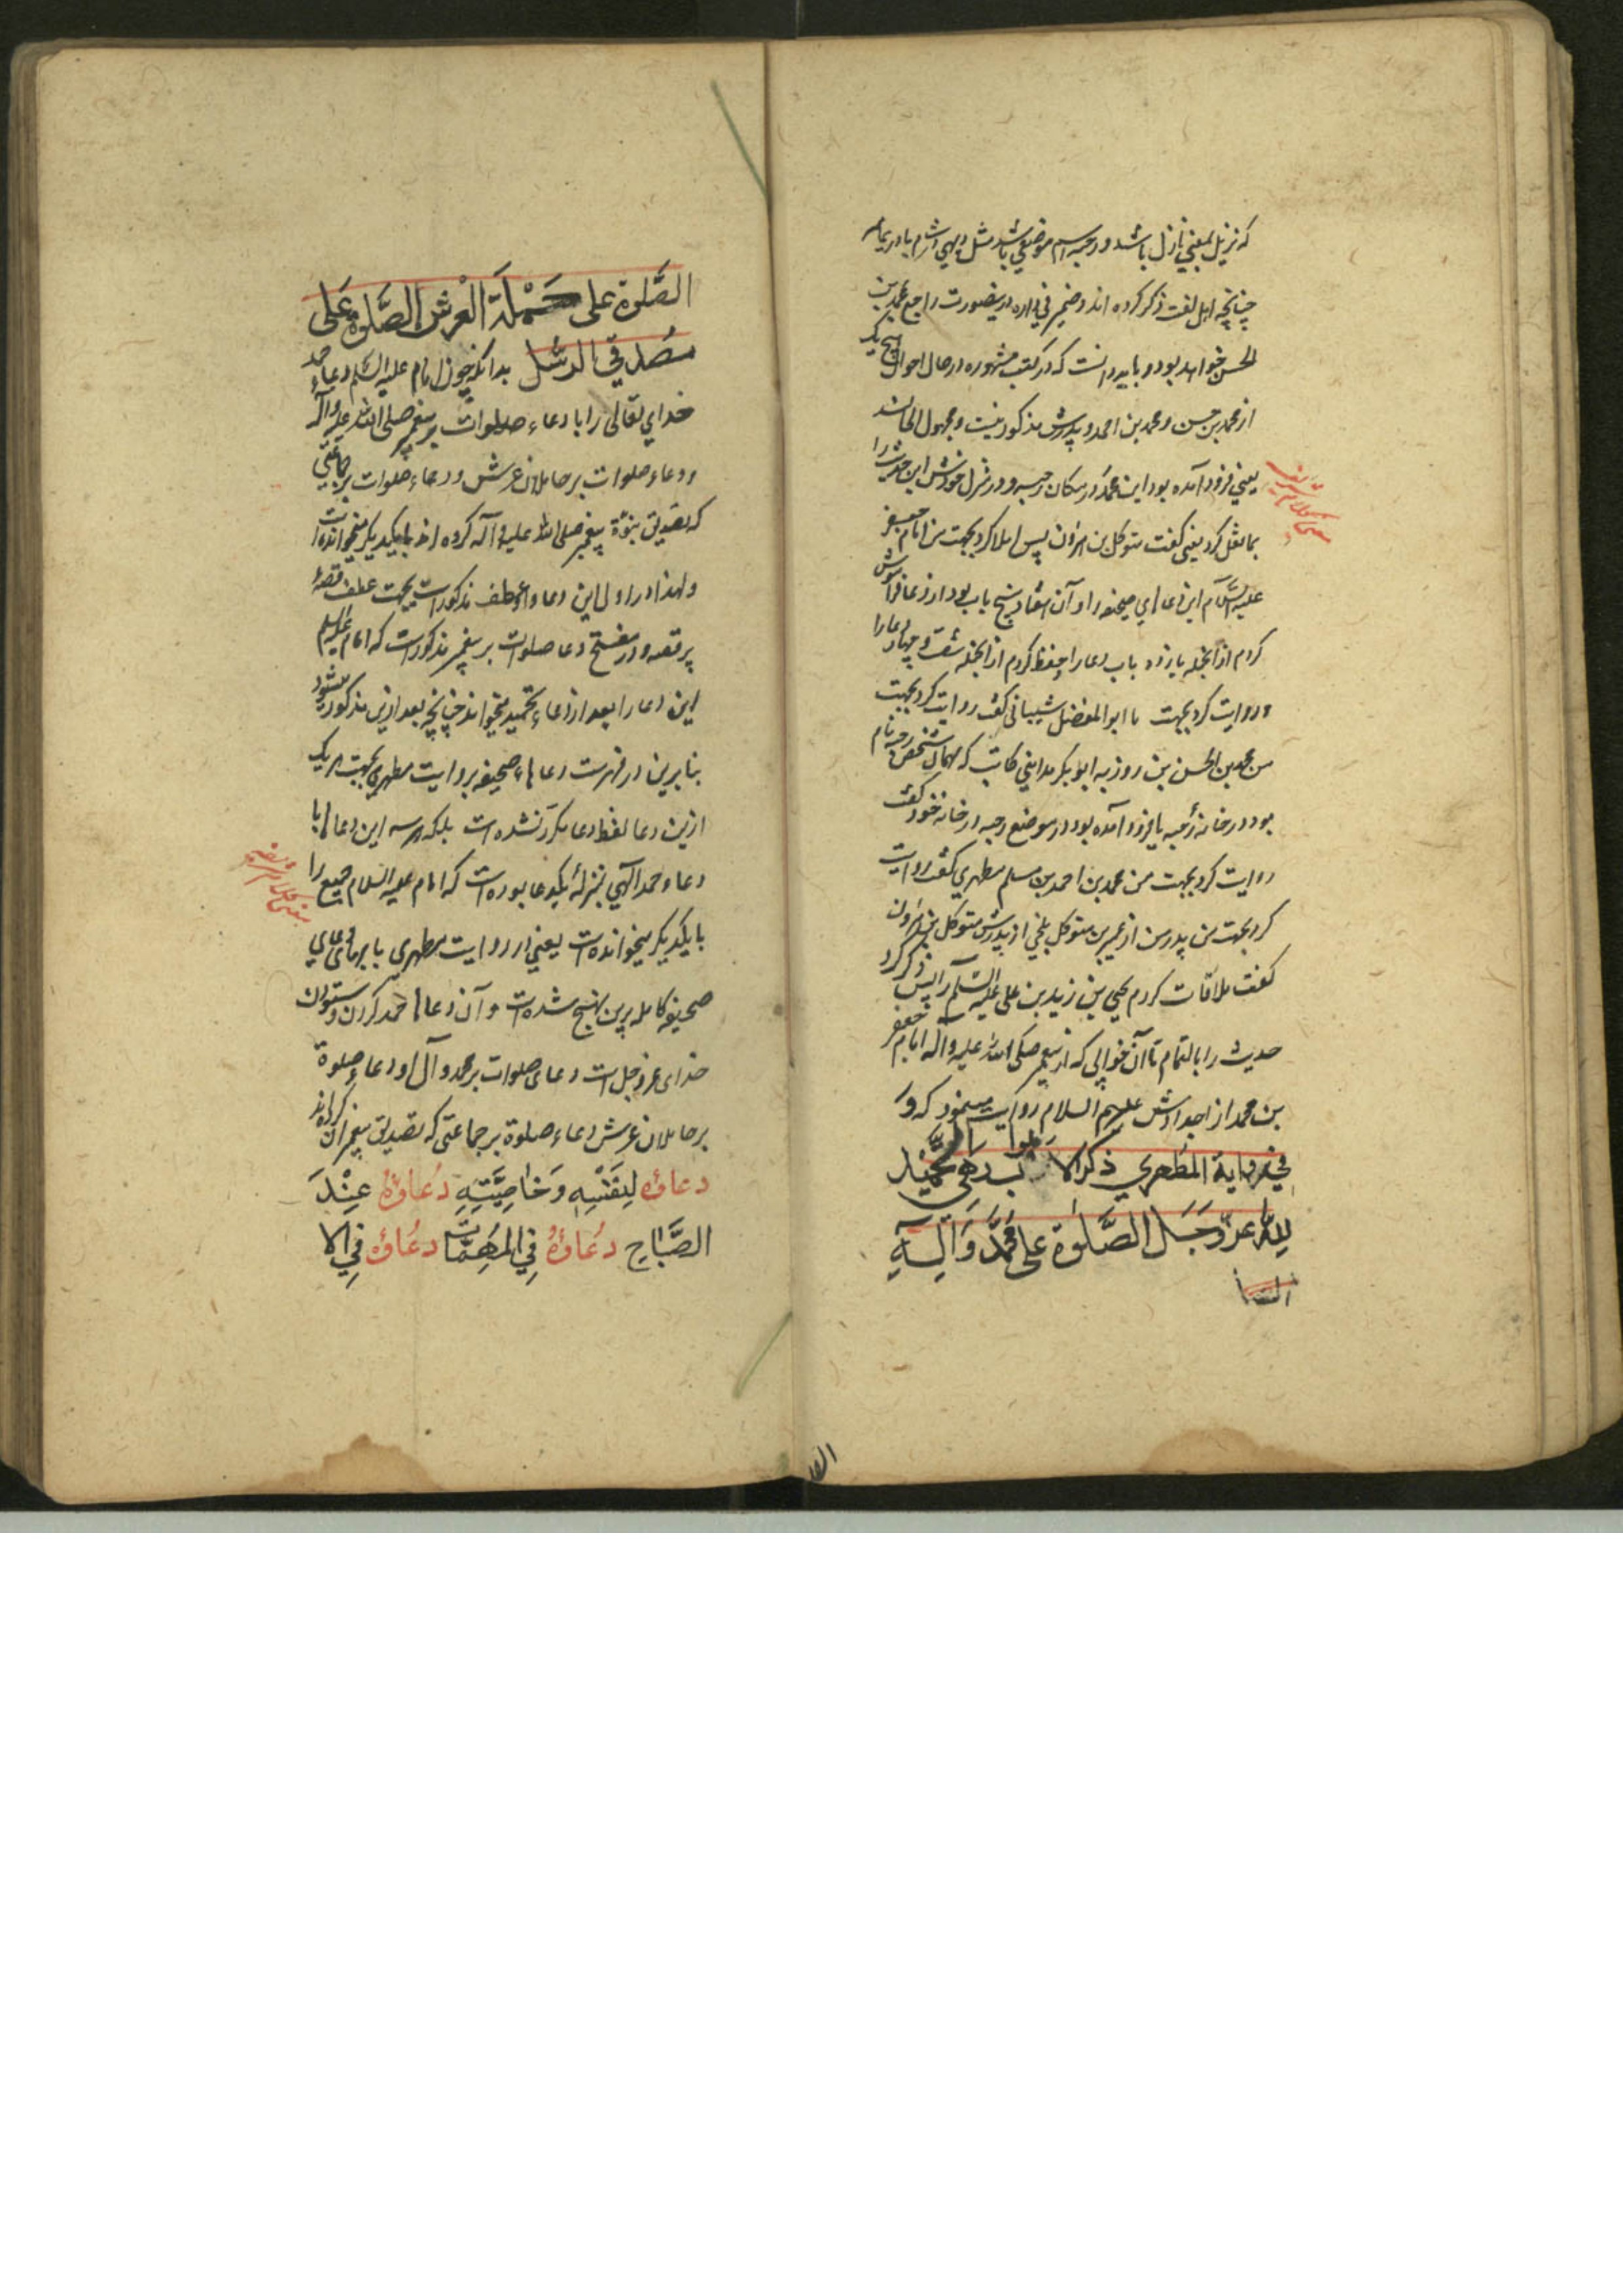 که نزیل بمعنی نازل باشد و رحبه اسم موضعی باشد مثل دیهی در شام یا در یمامه
چنانچه اهل لغت ذکر کرده اند و ضمیر فی داره درینصورت راجع بمحمد بن
الحسن خواهد بود و باید دانست که در کتب مشهوره در حال احوال هیچ یک
از محمد بن حسن و محمد بن احمد و پدرش مذکور نیست و مجهول الحالند
یعنی فرود آمده بود این محمد در مکان رحبه و در منزل خودش این حدیث را
بما نقل کرد یعنی گفت متوکل بن هارون پس املا کرد بجهت من امام جعفر
علیه السلام این دعاهای صحیفه را و آن هفتاد و پنج باب بود از دعا فراموش
کردم از آنجمله یازده باب دعا را و حفظ کردم از آنجمله شصت و چهار دعا را
و روایت کرد بجهت ما ابو المفضل شیبانی گفت روایت کرد بجهت
من محمد بن الحسن بن روزبه ابو بکر مداینی کاتب که مهمان شخصی رحبه نام
بود در خانه رحبه یا فرود آمده بود در موضع رحبه در خانه خود گفت
روایت کرد بجهت من محمد بن احمد بن مسلم مطهری گفت روایت
کرد بجهت من پدر من از عمیر بن متوکل بلخی از پدرش متوکل بن هارون
گفت ملاقات کردم یحیی بن زید بن علی علیه السلام را پس ذکر کرد
حدیث را بالتمام تا آن خوابی که از پیغمبر صلی الله علیه و آله امام جعفر
بن محمد از اجدادش علیهم السلام روایت مینمود که وَ
فی روایة المطهری ذکر الابواب و هی التحمید
لِلّٰه عزّ وجَلّ الصَّلوٰة علی محمّد وَ آلِهِ
الصلوة
الصَّلوة علی حَمَلَة العَرش الصَّلوة عَلی
مُصدّقی الرسُل بدانکه چون امام علیه السلام دعاء حمد
خدای تعالی را با دعاء صلوات بر پیغمبر صلی الله علیه و آله
و دعاء صلوات بر حاملان عرش و دعاء صلوات بر جماعتی
که تصدیق بنبوة پیغمبر صلی الله علیه و آله کرده اند با یکدیگر میخوانده است
و لهذا در اول این دعا واو عطف مذکور است بجهت عطف قصهٔ
بر قصه و در مفتتح دعا صلوات بر پیغمبر مذکور است که امام علیه السلام
این دعا را بعد از دعاء تحمید میخواند چنانچه بعد ازین مذکور میشود
بنابرین در فهرست دعاهاء صحیفه بروایت مطهری بجهت هر یک
ازین دعا لفظ دعا مکرر نشده است بلکه هر سه این دعاها با
دعاء حمد الهی بمنزلهٔ یکدعا بوده است که امام علیه السلام جمیع را
با یکدیگر میخوانده است یعنی در روایت مطهری بابهای دعاهای
صحیفه کامله برین نهج شده است و آن دعاها حمد کردن و ستودن
خدای عز و جل است دعای صلوات بر محمد و آل او دعاء صلوة
بر حاملان عرش دعاء صلوة بر جماعتی که تصدیق پیغمبران کرده اند
دعاؤه لِنَفسِهِ وَ خاصِیَّتِهِ دُعاؤُهُ عِنْدَ
الصَّباحِ دُعاؤُهُ فِی المُهِمّاتِ دُعاؤه فِی الا